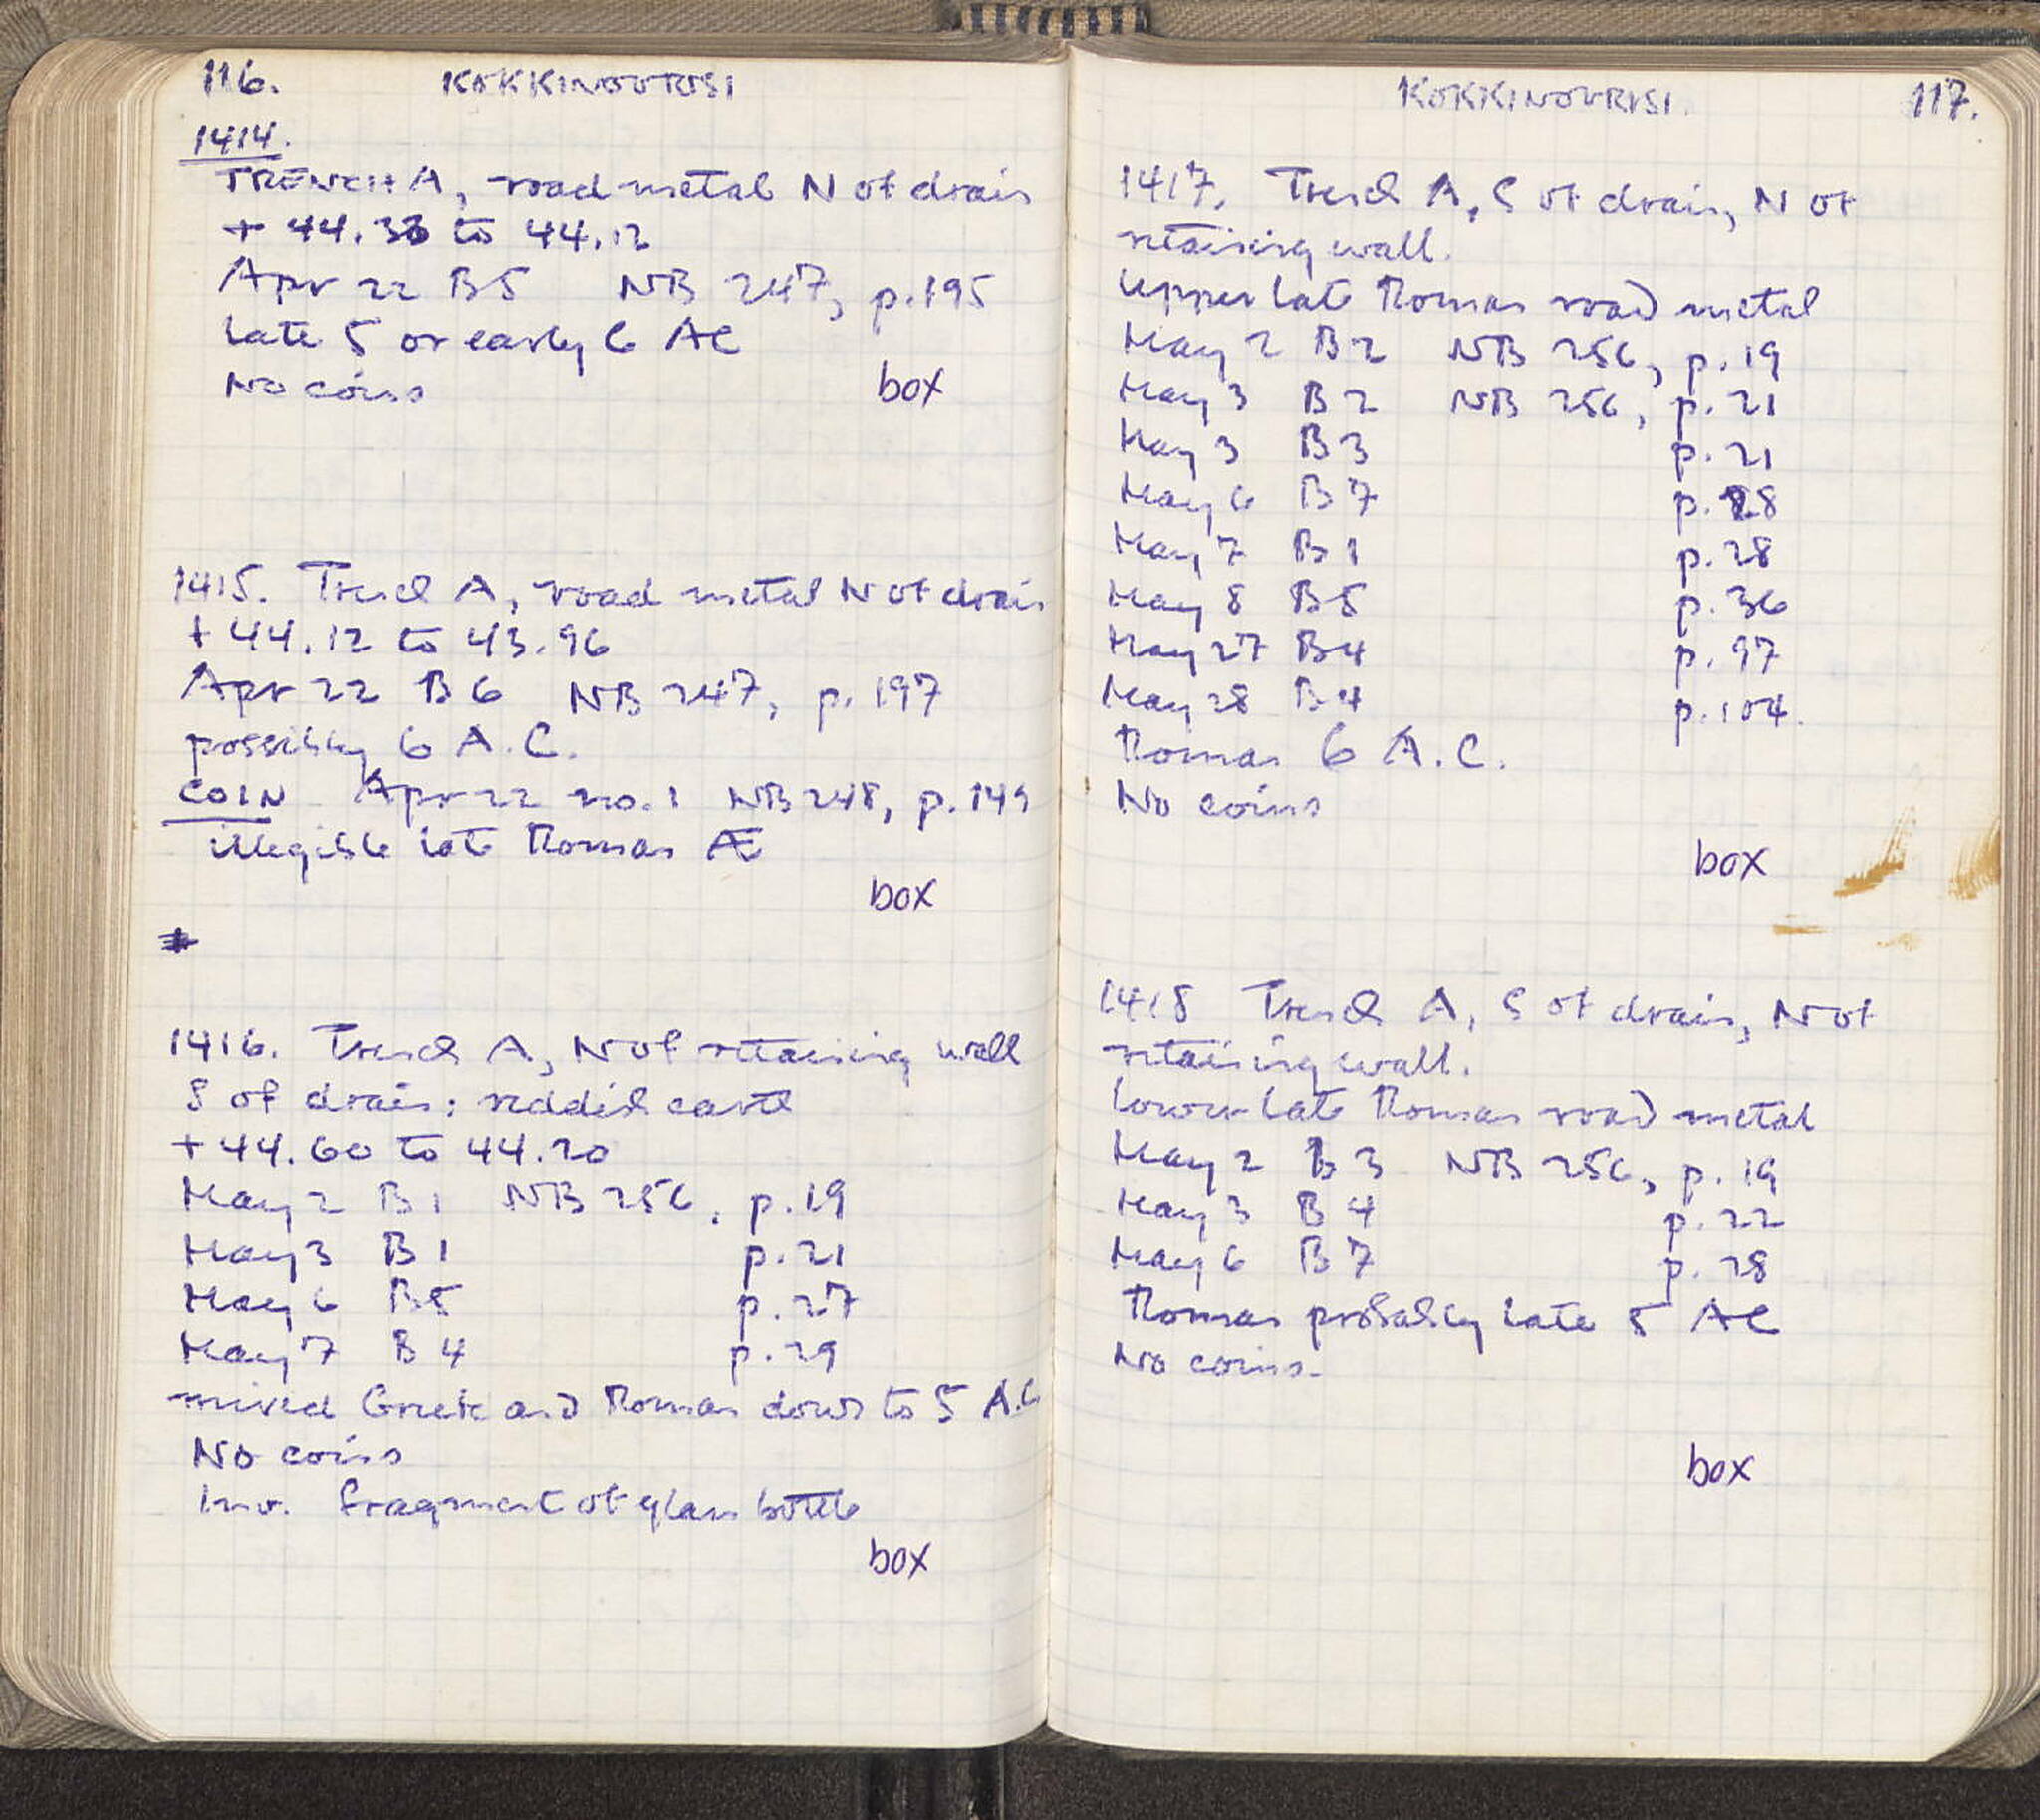 116. KOKKINOVRISI
1414.
TRENCH A, road metal N of drain
+ 44.38 to 44.12
Apr 22 B5 NB 247, p.195
late 5 or early 6 AC
No coins box
1415. Trench A, road metal N of drain
+ 44.12 to 43.96
Apr 22 B6 NB 247, p. 197
possibly 6 A.C.
COIN Apr 22 no. 1 NB 248, p. 149
illegible late Roman Æ
box
1416. Trench A, N of retaining wall
S of drain: reddish earth
+ 44.60 to 44.20
May 2 B1 NB 256, p.19
May 3 B1 p.21
May 6 B5 p.27
May 7 B4 p.29
mixed Greek and Roman down to 5 A.C
No coins
Inv. fragment of glass bottle
box
KOKKINOVRISI. 117.
1417. Trench A, S of drain, N of
retaining wall.
Upper late Roman road metal
May 2 B2 NB 256, p.19
May 3 B2 NB 256, p.21
May 3 B3 p.21
May 6 B7 p.28
May 7 B1 p.28
May 8 B5 p.36
May 27 B4 p.97
May 28 B4 p.104.
Roman 6 A.C.
No coins
box
1418 Trench A, S of drain, N of
retaining wall.
Lower late Roman road metal
May 2 B3 NB 256, p.19
May 3 B4 p.22
May 6 B7 p.28
Roman probably late 5 AC
No coins.
box